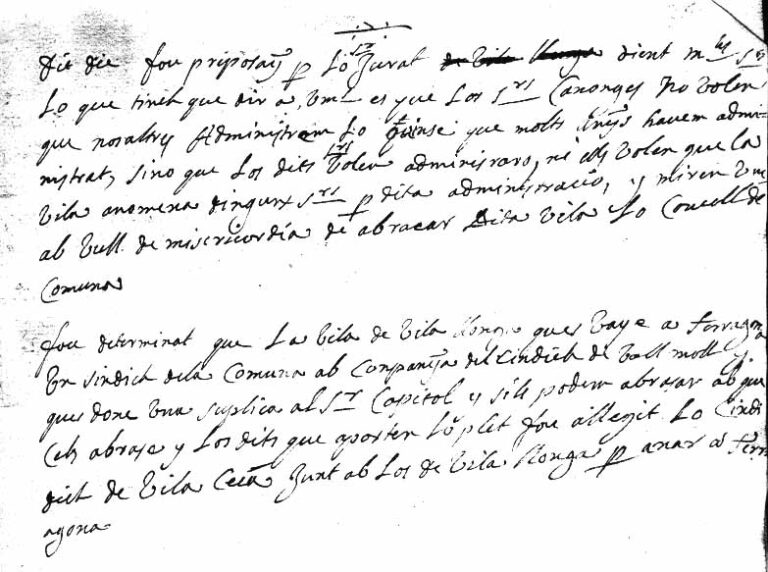 Dit die fou proposat p lo Sr Jurat de Vila llonga dient mls Srs
Lo que tinch que dir a Vms es que Los Srs Canonges No volen
que nosaltres Administrem Lo que molts anys havem admi-
nistrat, sino que Los dits Srs volen administraro, ni ells volen que la
vila anomena dingunx Srs p dita administracio, y miren Vms
ab Vull de misericordia de abraçar Dita vila Lo Concell de
Comuna
fou determinat que La vila de Vila llonga ques vaye a Terragona
Un sindich dela Comuna ab Companya del Cindich de Vall moll y
ques done Una suplica al Sr Capitol y sils podem abrasar ab que
Cels abrase y Los dits que aporten Lo plet fou allegit Lo Cindi
dich de Vila Ceca Junt ab Los de Vila llonga p anar a Terr
agona